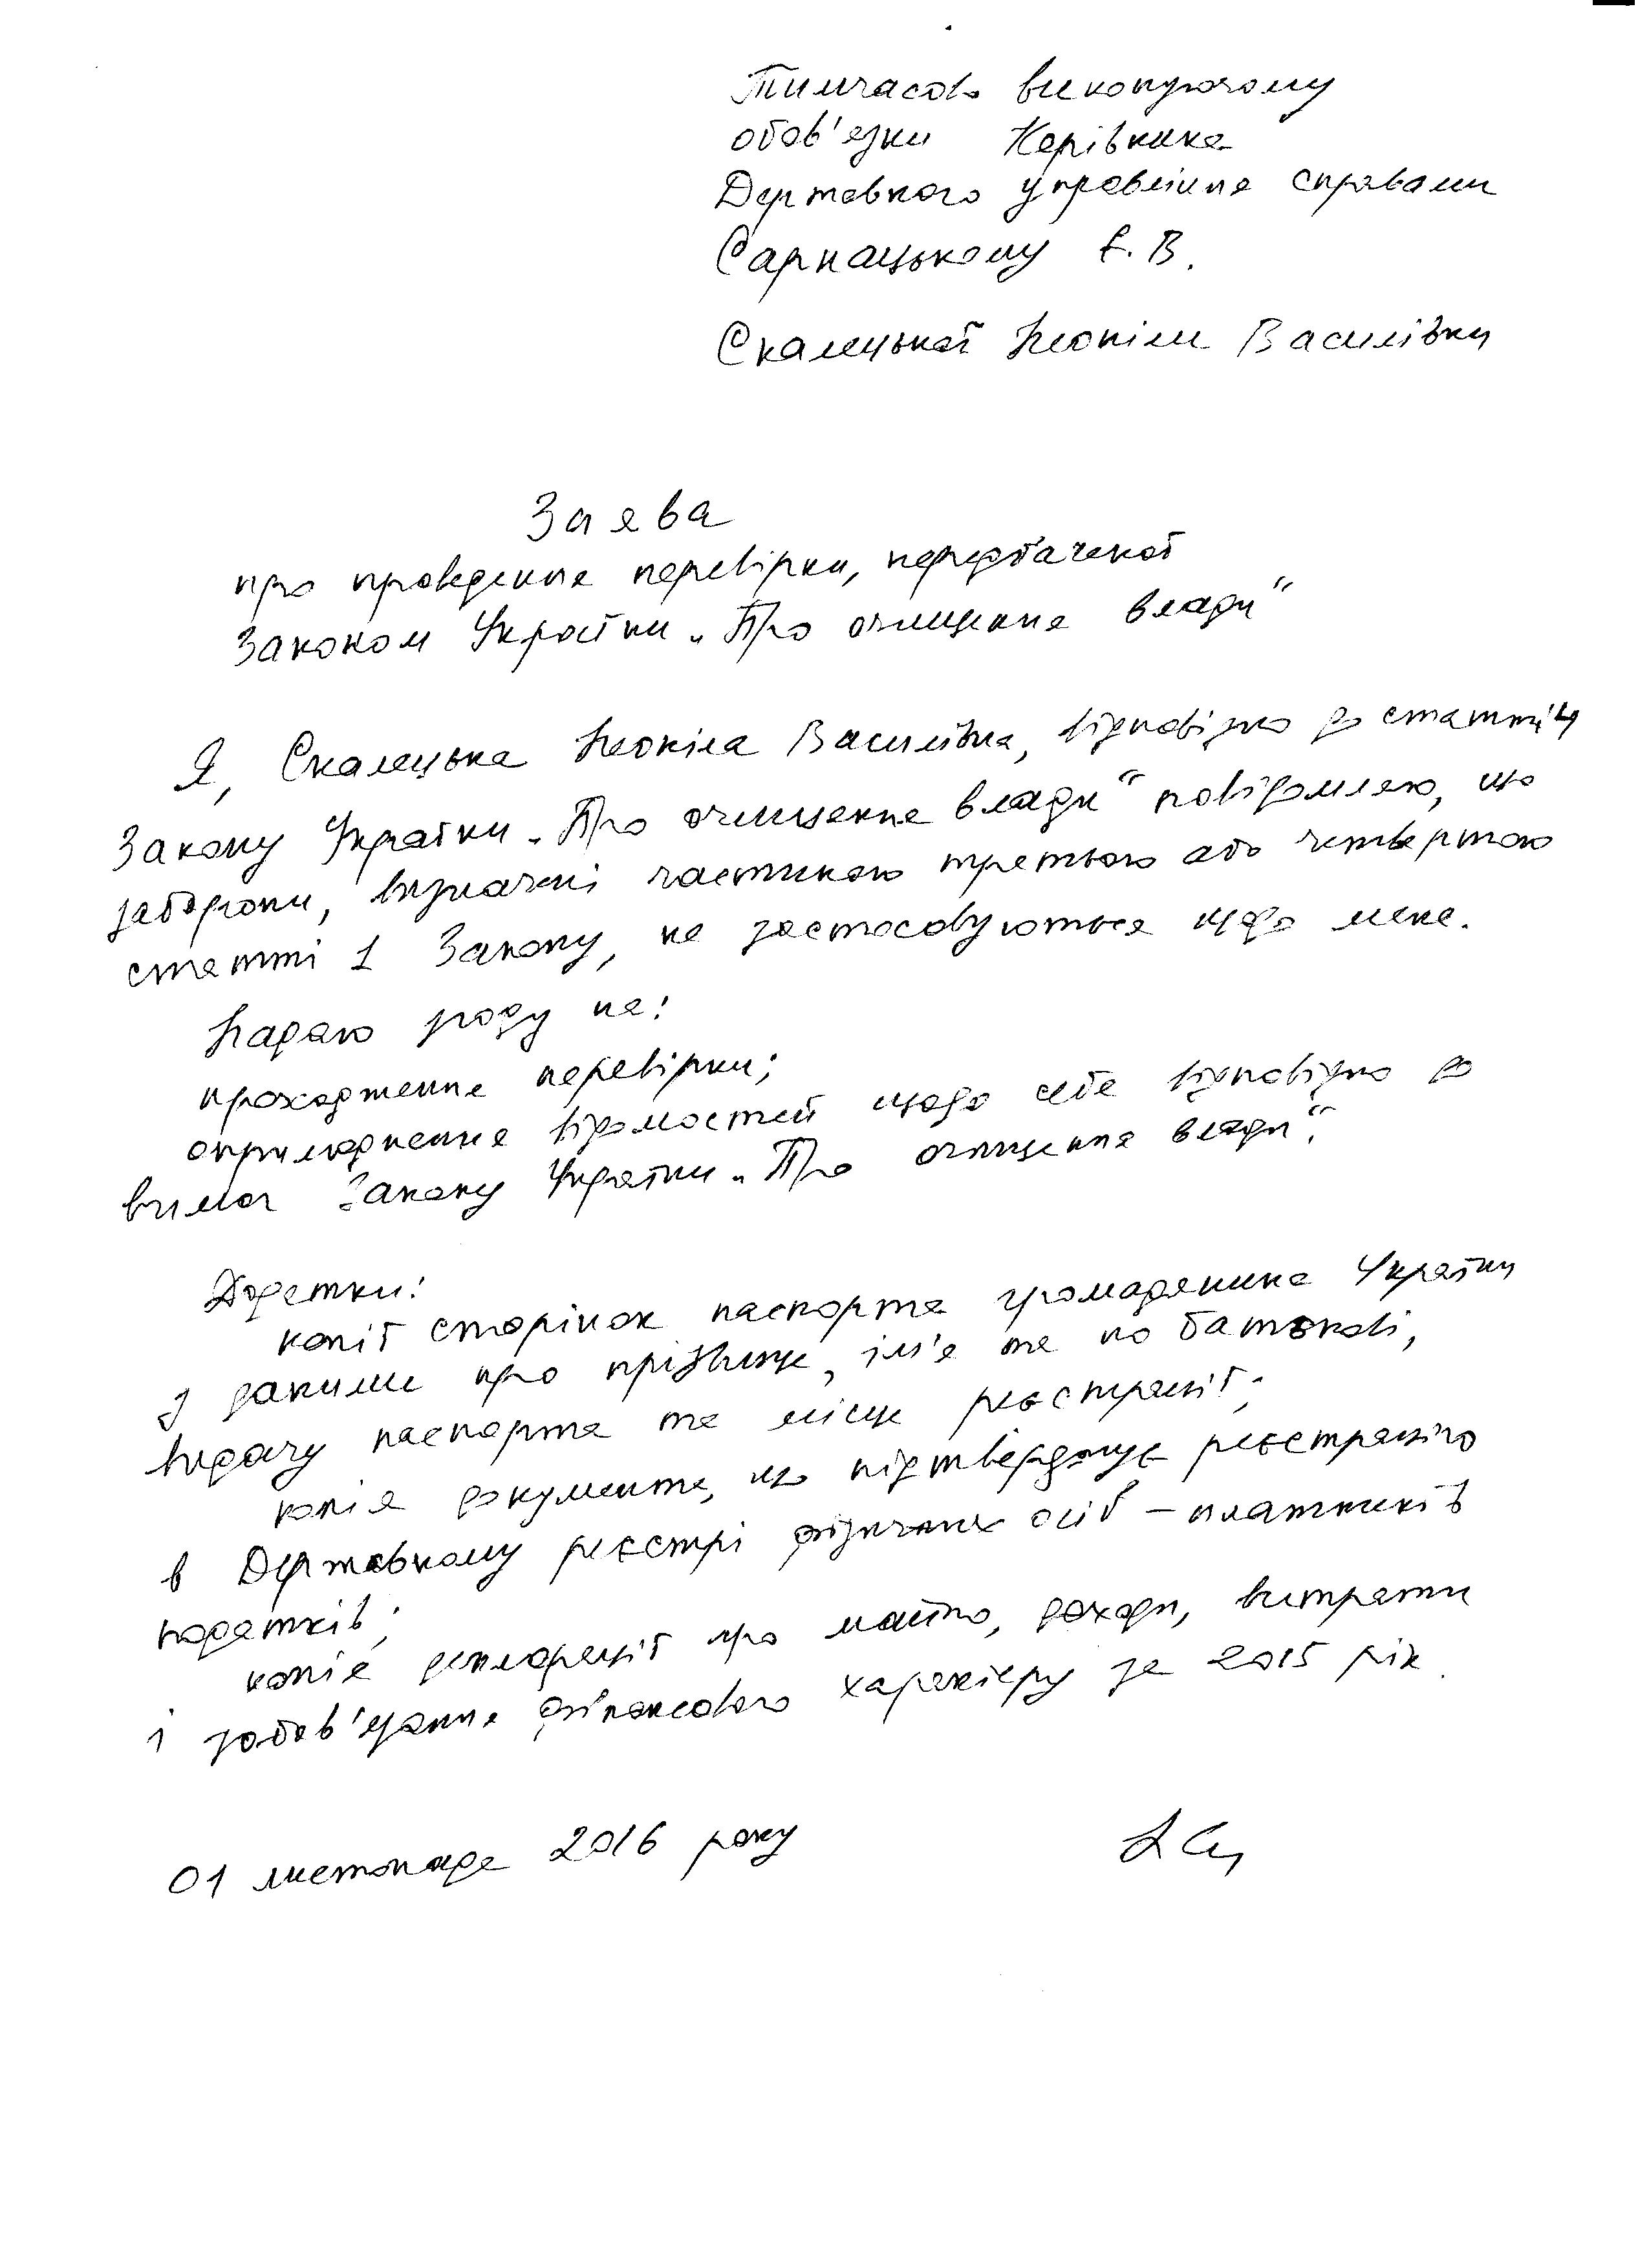 Тимчасово виконуючому
обов'язки Керівника
Державного управління справами
Сарнацькому Є.В.
Скалецької Неоніли Василівни
Заява
про проведення перевірки, передбаченої
Законом України „Про очищення влади“
Я, Скалецька Неоніла Василівна, відповідно до статті 4
Закону України „Про очищення влади“ повідомляю, що
заборони, визначені частиною третьою або четвертою
статті 1 Закону, не застосовуються щодо мене.
Надаю згоду на:
проходження перевірки;
оприлюднення відомостей щодо себе відповідно до
вимог Закону України „Про очищення влади“.
Додатки:
копії сторінок паспорта громадянина України
з даними про прізвище, ім'я та по батькові,
видачу паспорта та місце реєстрації;
копія документа, що підтверджує реєстрацію
в Державному реєстрі фізичних осіб – платників
податків;
копія декларації про майно, доходи, витрати
і зобов'язання фінансового характеру за 2015 рік.
01 листопада 2016 року